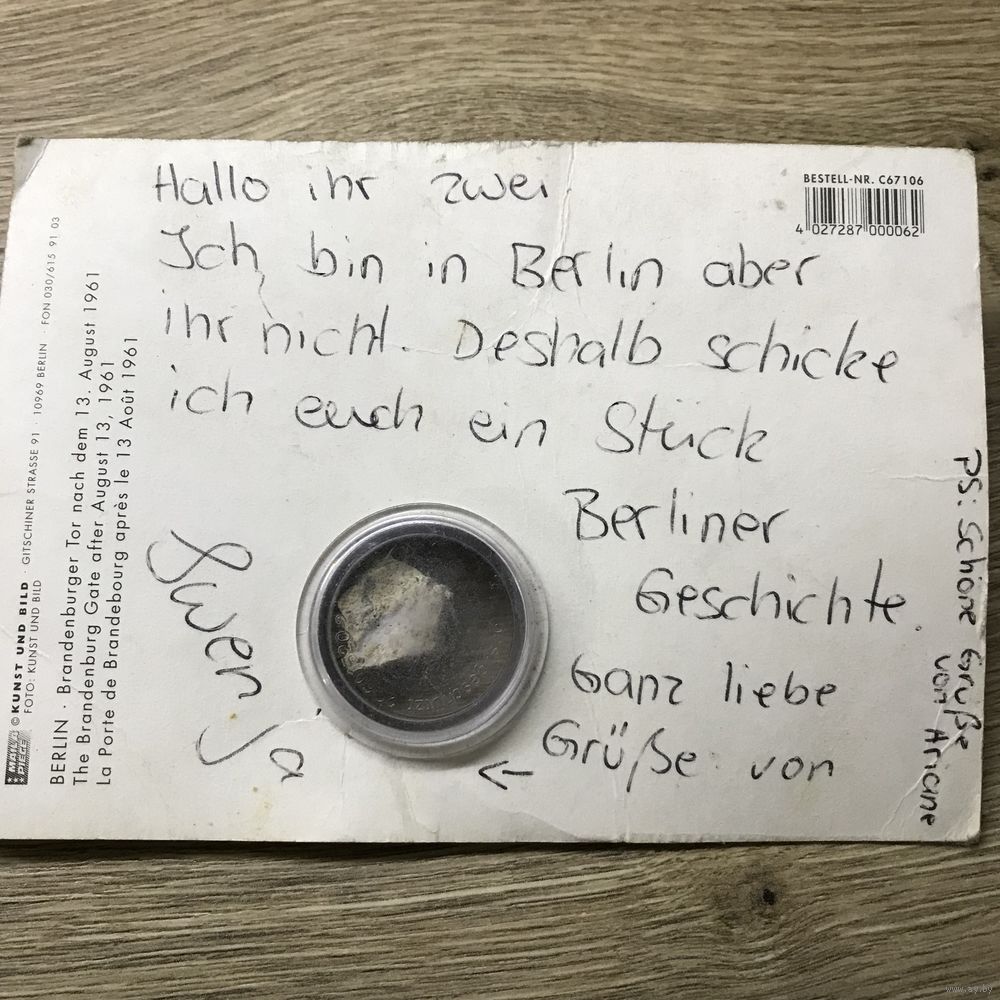 Hallo ihr zwei
Ich bin in Berlin aber
ihr nicht. Deshalb schicke
ich euch ein Stück
Berliner
Geschichte.
Ganz liebe
Grüße von
←
Swenja
PS: Schöne Grüße
von Ariane
BESTELL-NR. C67106
4 027287 000062
© KUNST UND BILD · GITSCHINER STRASSE 91 · 10969 BERLIN · FON 030/615 91 03
FOTO: KUNST UND BILD
BERLIN · Brandenburger Tor nach dem 13. August 1961
The Brandenburg Gate after August 13, 1961
La Porte de Brandebourg après le 13 Août 1961
www.ay.by